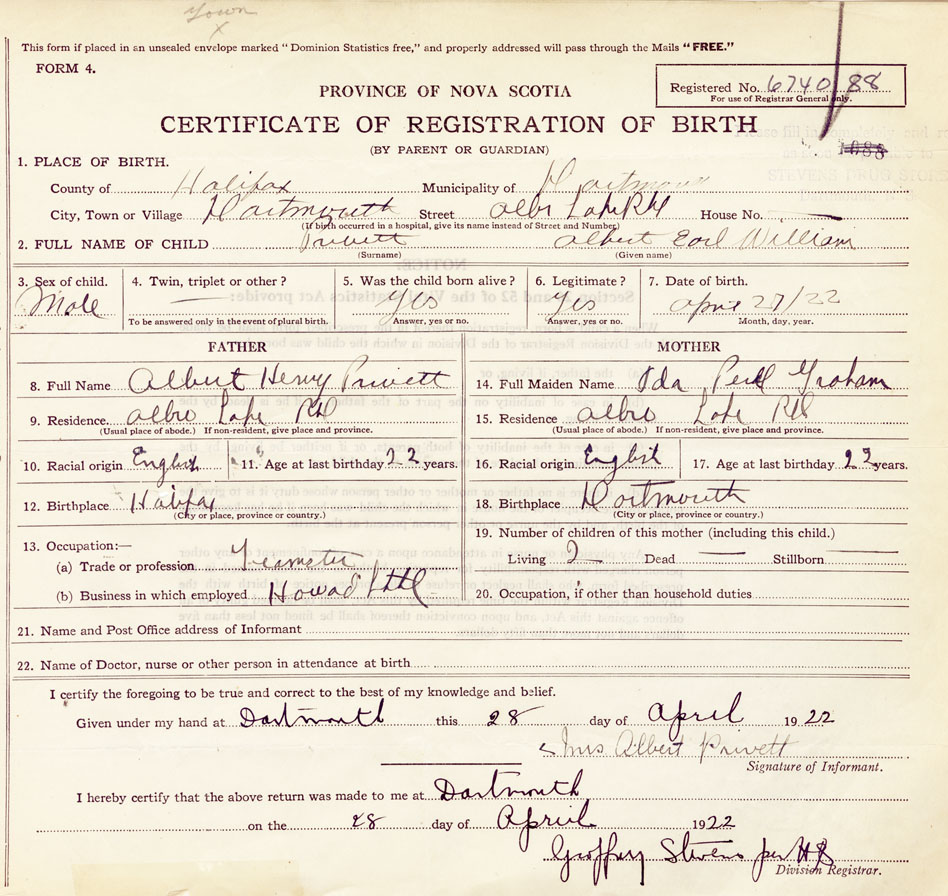 Town
X
This form if placed in an unsealed envelope marked "Dominion Statistics free," and properly addressed will pass through the Mails "FREE."
FORM 4.
Registered No. 6740 88
For use of Registrar General only.
PROVINCE OF NOVA SCOTIA
CERTIFICATE OF REGISTRATION OF BIRTH
(BY PARENT OR GUARDIAN)
1088
1. PLACE OF BIRTH.
County of Halifax Municipality of Dartmouth
City, Town or Village Dartmouth Street Albro Lake Rd House No.
(If birth occurred in a hospital, give its name instead of Street and Number)
2. FULL NAME OF CHILD Privett Albert Earl William
(Surname) (Given name)
3. Sex of child. 4. Twin, triplet or other? 5. Was the child born alive? 6. Legitimate? 7. Date of birth.
Male — Yes Yes April 27/22
To be answered only in the event of plural birth. Answer, yes or no. Answer, yes or no. Month, day, year.
FATHER MOTHER
8. Full Name Albert Henry Privett 14. Full Maiden Name Ida Pearl Graham
9. Residence Albro Lake Rd 15. Residence Albro Lake Rd
(Usual place of abode.) If non-resident, give place and province. (Usual place of abode.) If non-resident, give place and province.
10. Racial origin English 11. Age at last birthday 22 years. 16. Racial origin English 17. Age at last birthday years.
12. Birthplace Halifax 18. Birthplace Dartmouth
(City or place, province or country.) (City or place, province or country.)
13. Occupation:— 19. Number of children of this mother (including this child.)
(a) Trade or profession Teamster Living 2 Dead — Stillborn —
(b) Business in which employed 20. Occupation, if other than household duties
21. Name and Post Office address of Informant
22. Name of Doctor, nurse or other person in attendance at birth
I certify the foregoing to be true and correct to the best of my knowledge and belief.
Given under my hand at Dartmouth this 28 day of April 1922
Mrs Albert Privett
Signature of Informant.
I hereby certify that the above return was made to me at Dartmouth
on the 28 day of April 1922
Geoffrey Stevens per HB
Division Registrar.